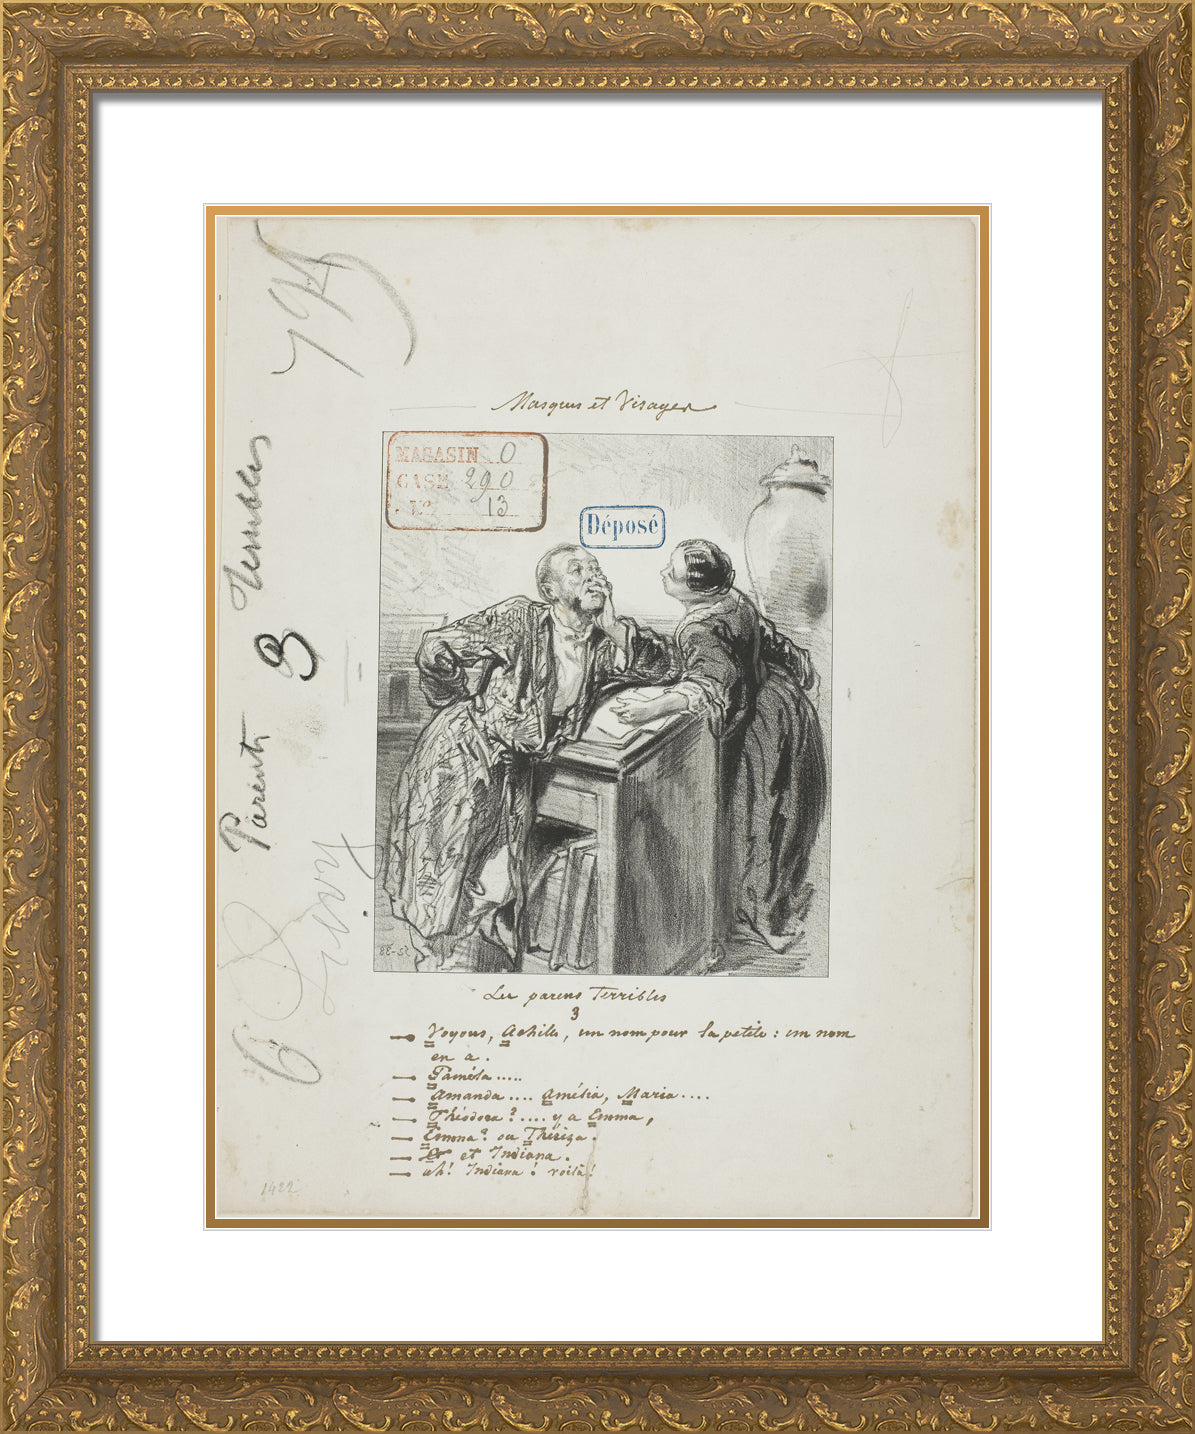 Masques et Visages
MAGASIN 0
CASE 290
N° 13
Déposé
Parents 3 Terribles
6
Les parens Terribles
3
— Voyons, Achille, un nom pour la petite : un nom
en a.
— Paméla.....
— Amanda.... Amélia, Maria....
— Théodora ?.... y a Emma,
— Emma ? ou Thériza.
— et Indiana.
— ah ! Indiana ! voilà !
1422